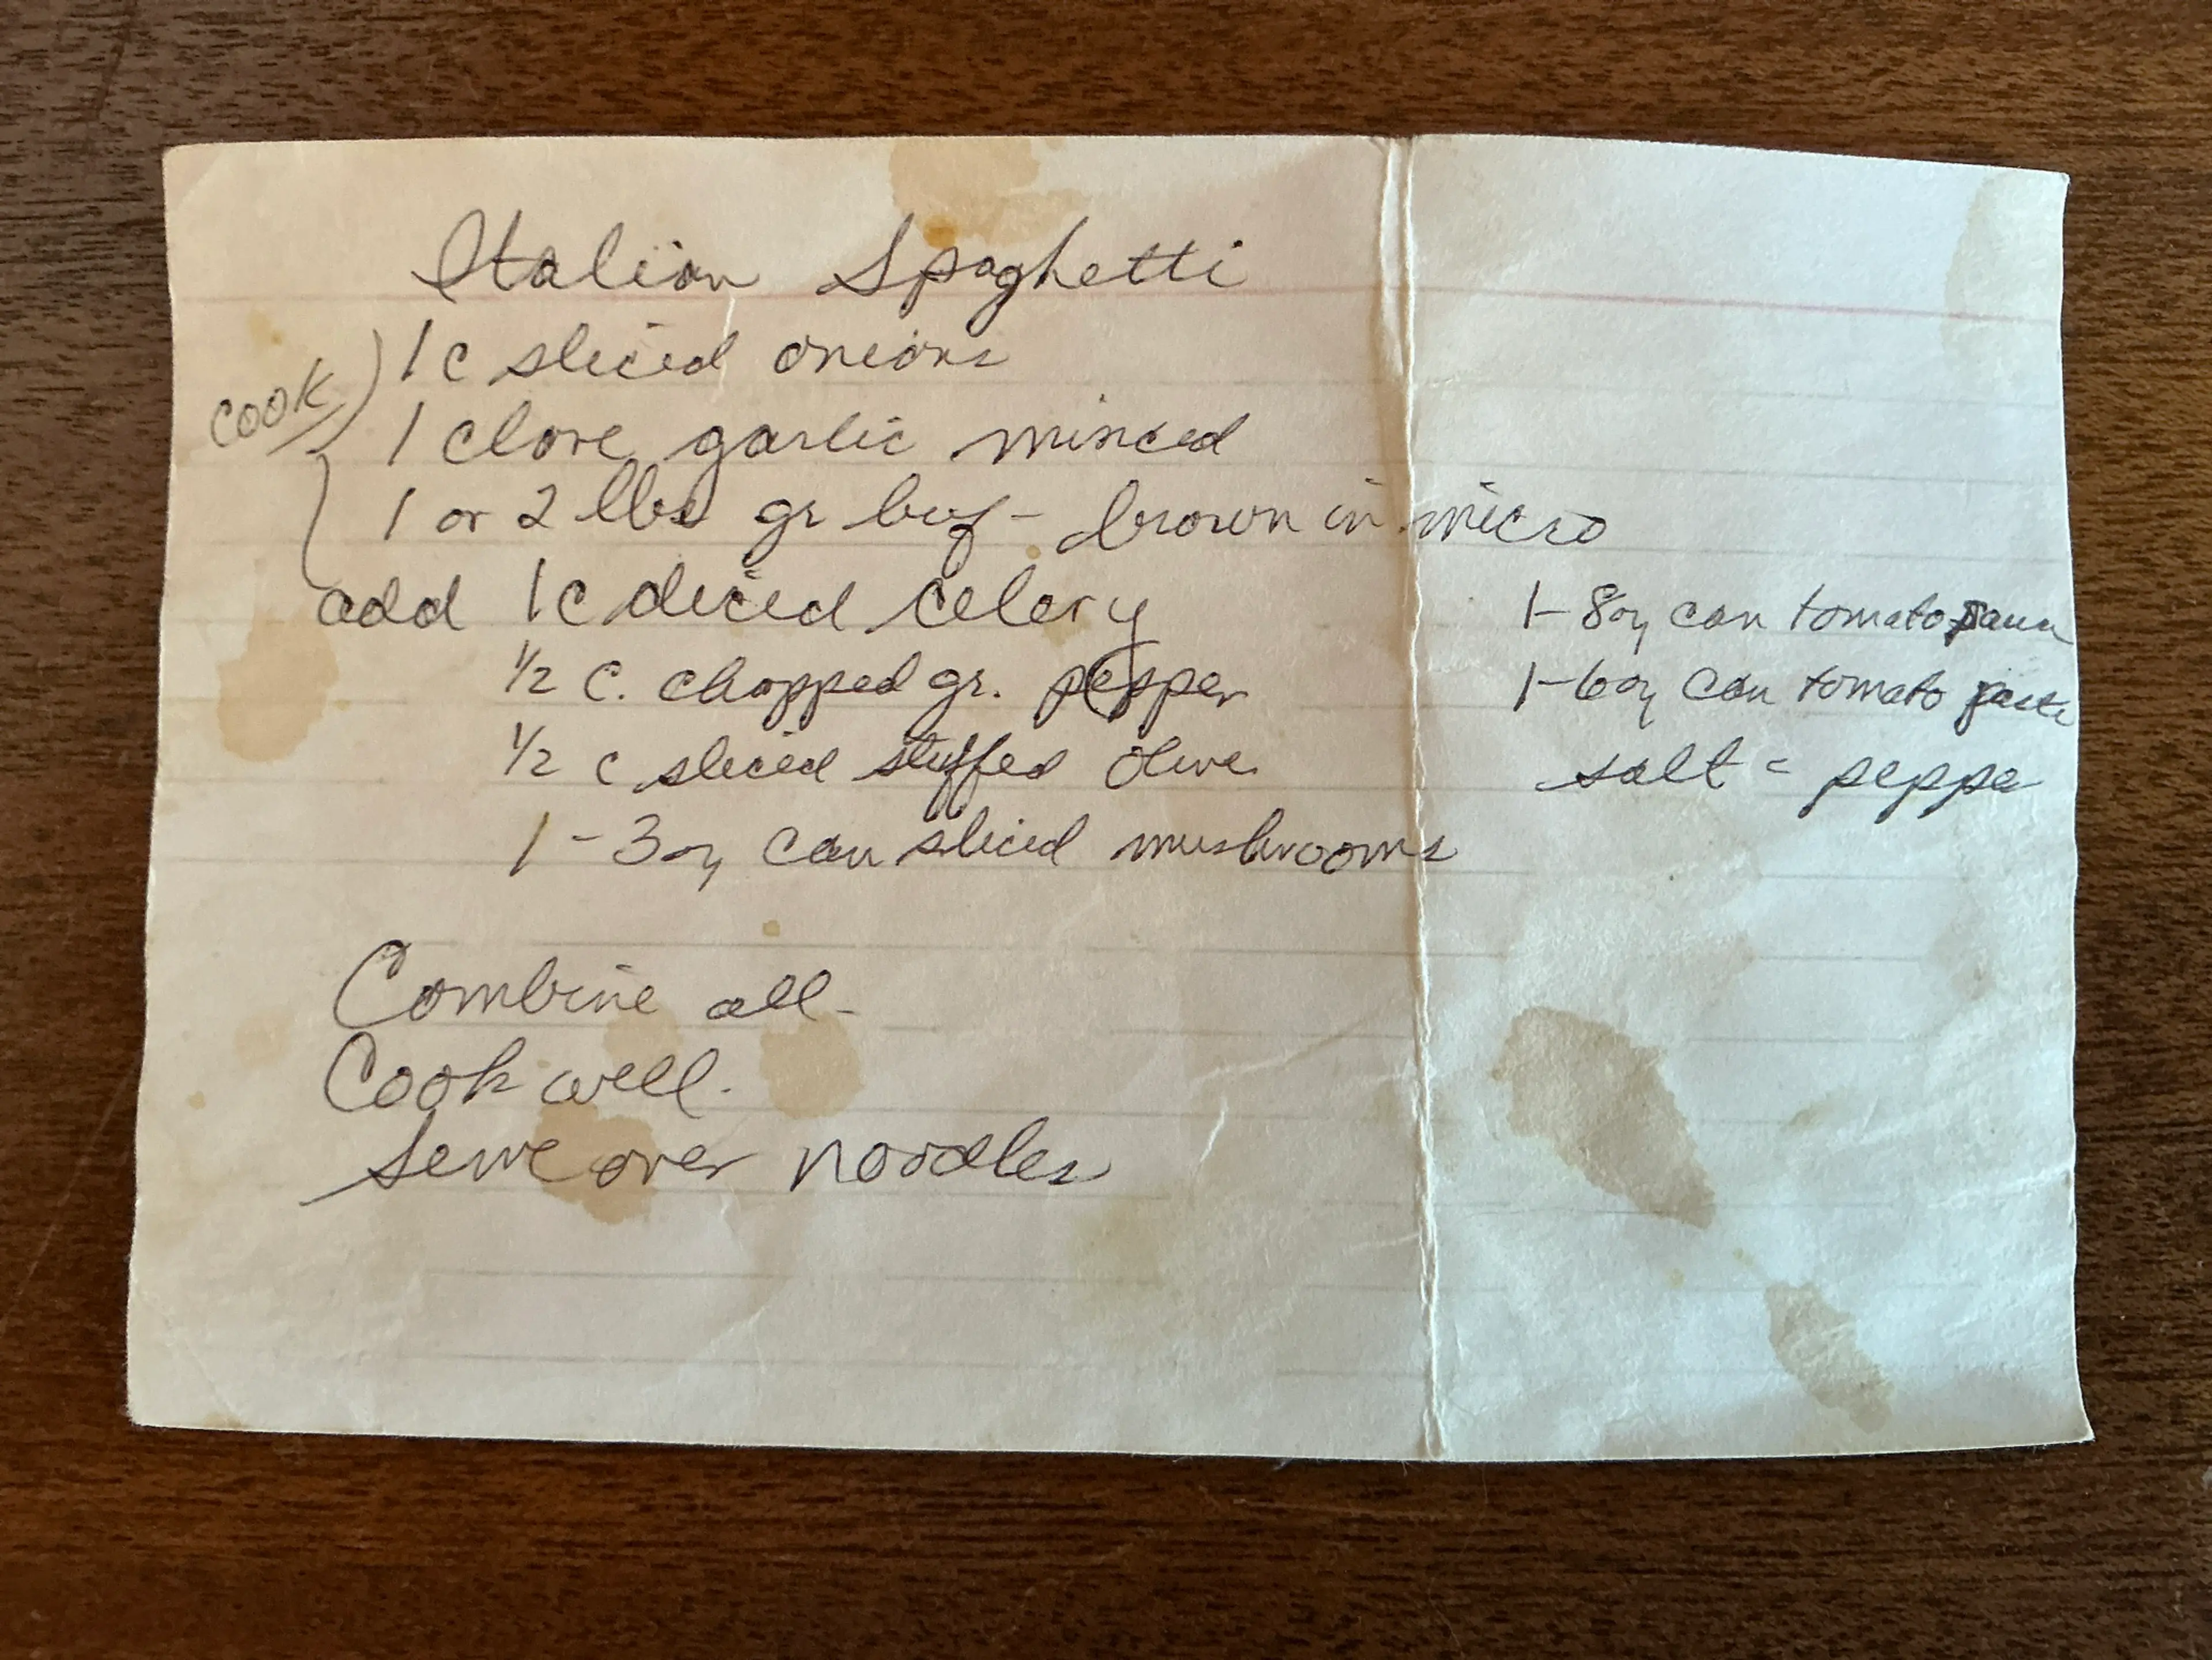 Italian Spaghetti
1 c sliced onions
cook
1 clove garlic minced
1 or 2 lbs gr beef - brown in micro
add 1 c diced celery
1/2 c. chopped gr. pepper
1/2 c sliced stuffed olive
1 - 3 oz can sliced mushrooms
1 - 8 oz can tomato sauce
1 - 6 oz can tomato paste
salt = pepper
Combine all -
Cook well.
Serve over noodles